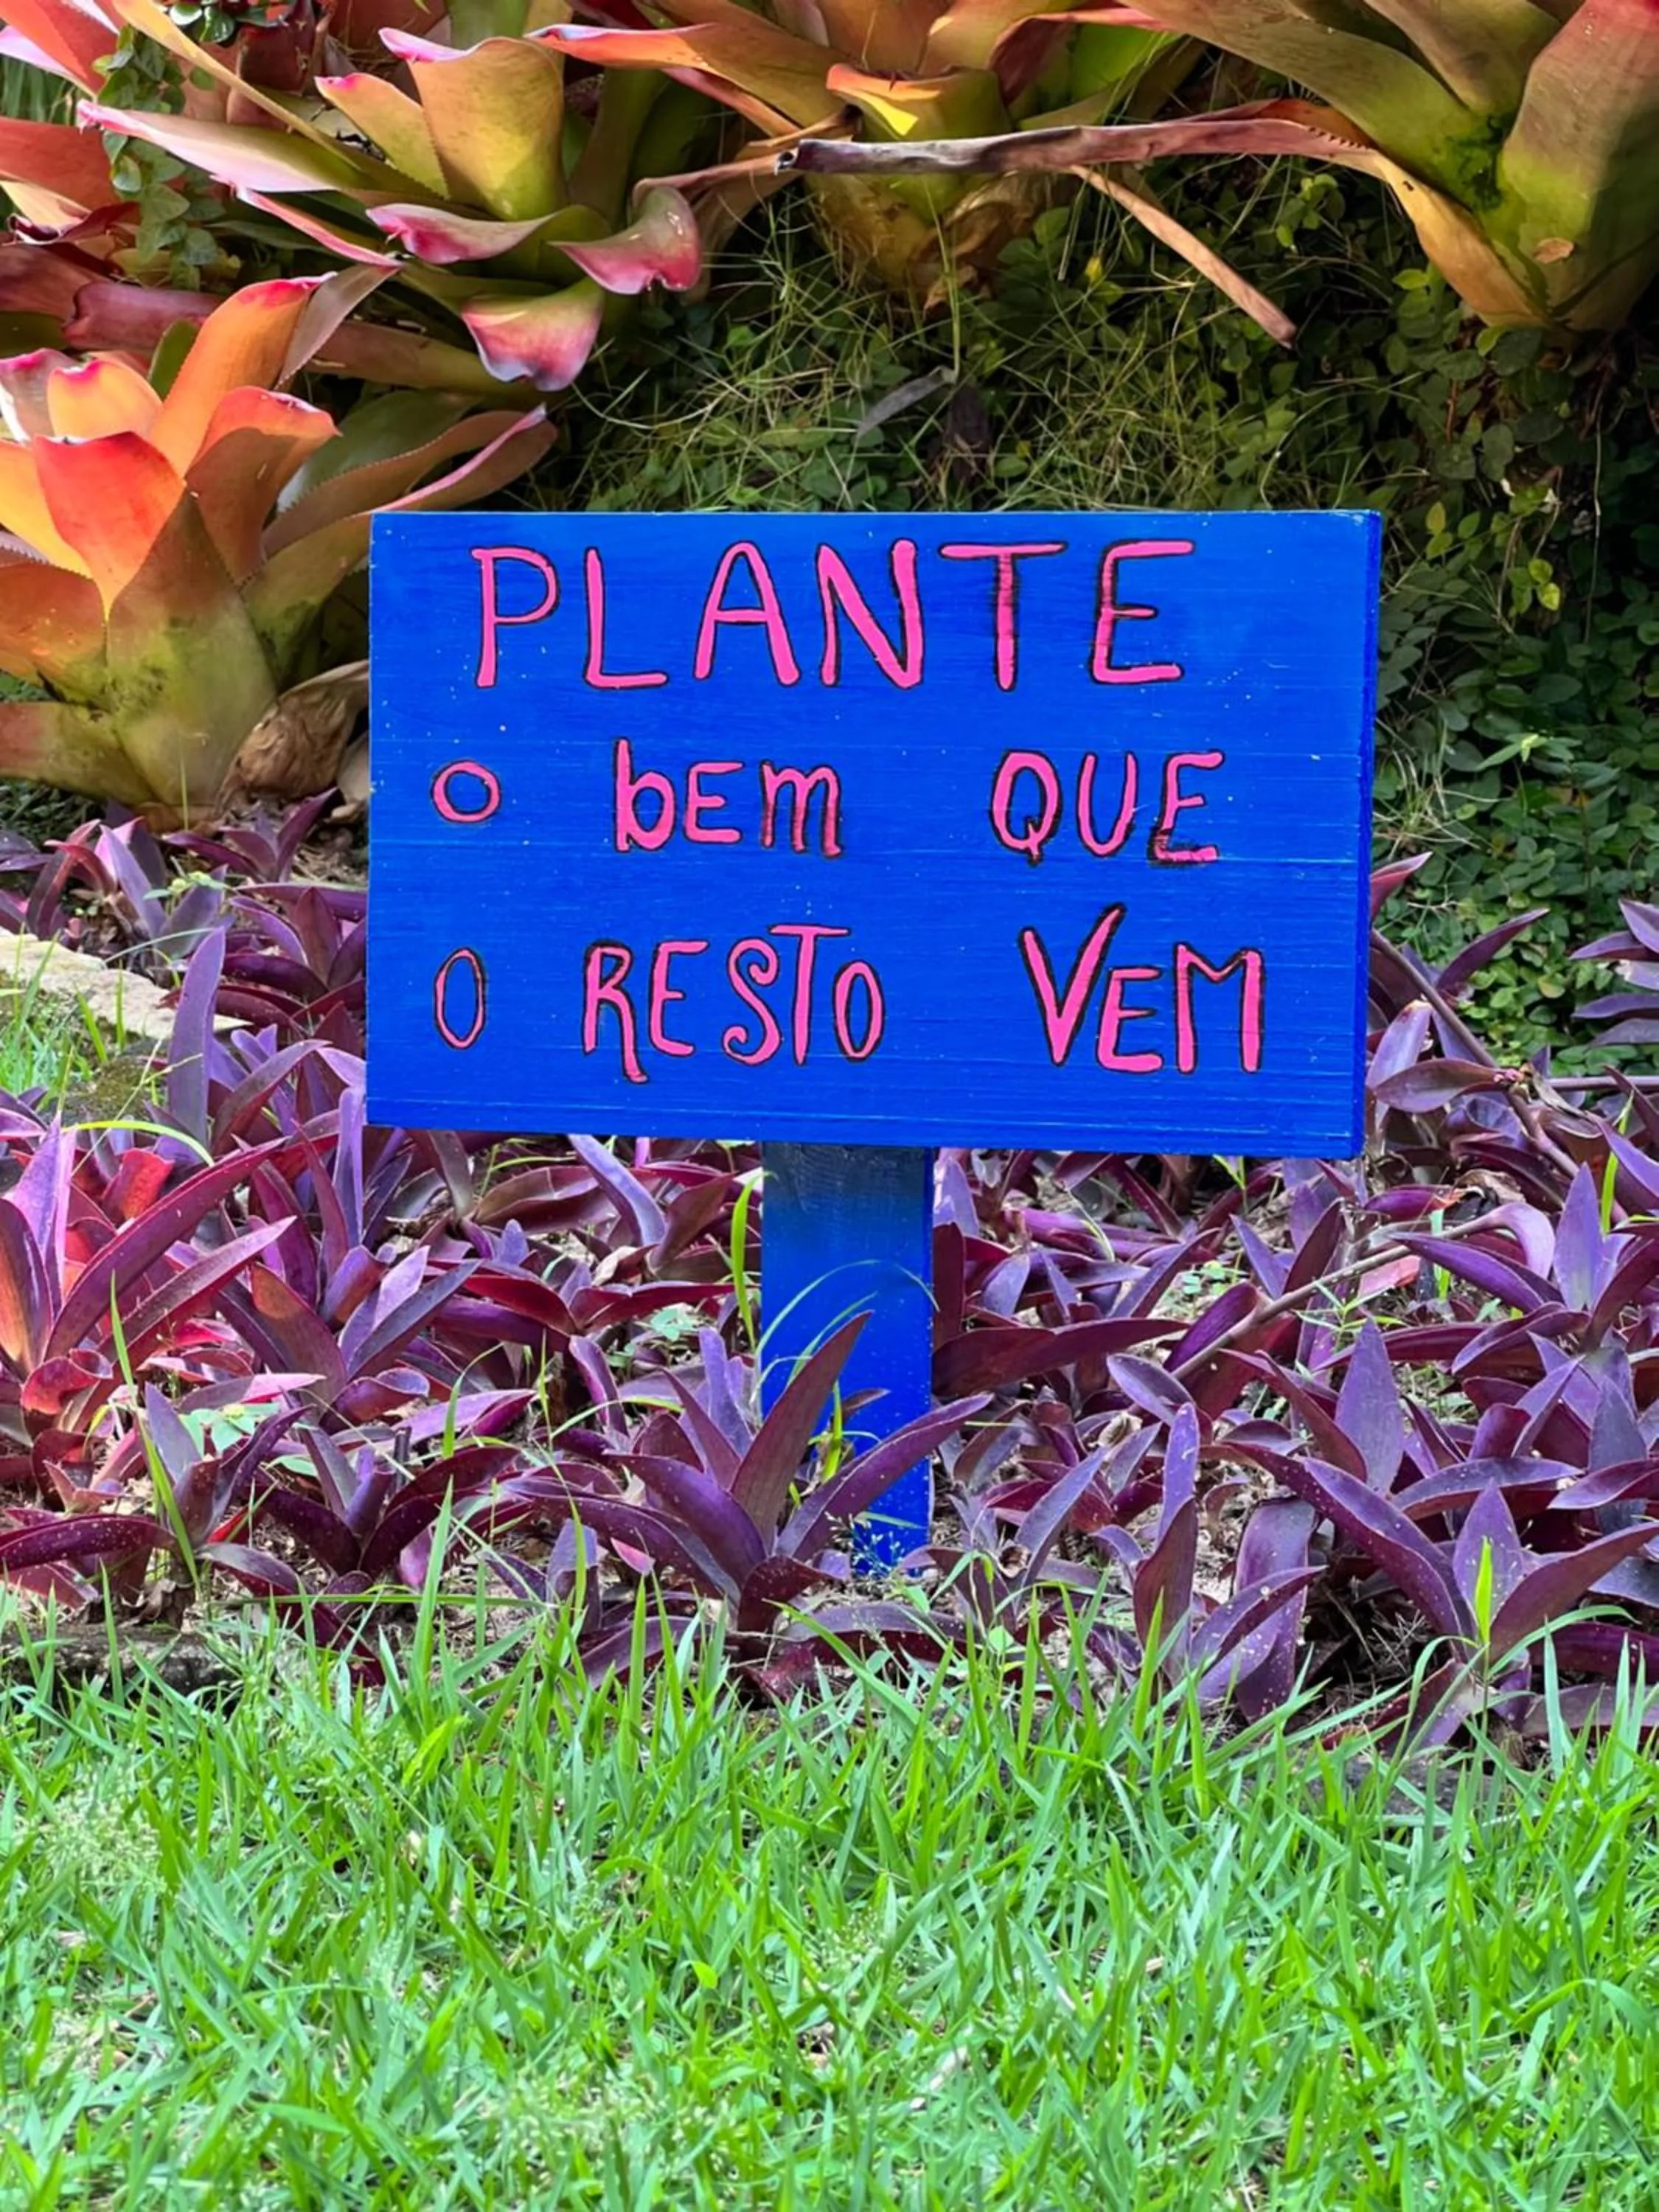 PLANTE
O bEm QUE
O RESTO VEM